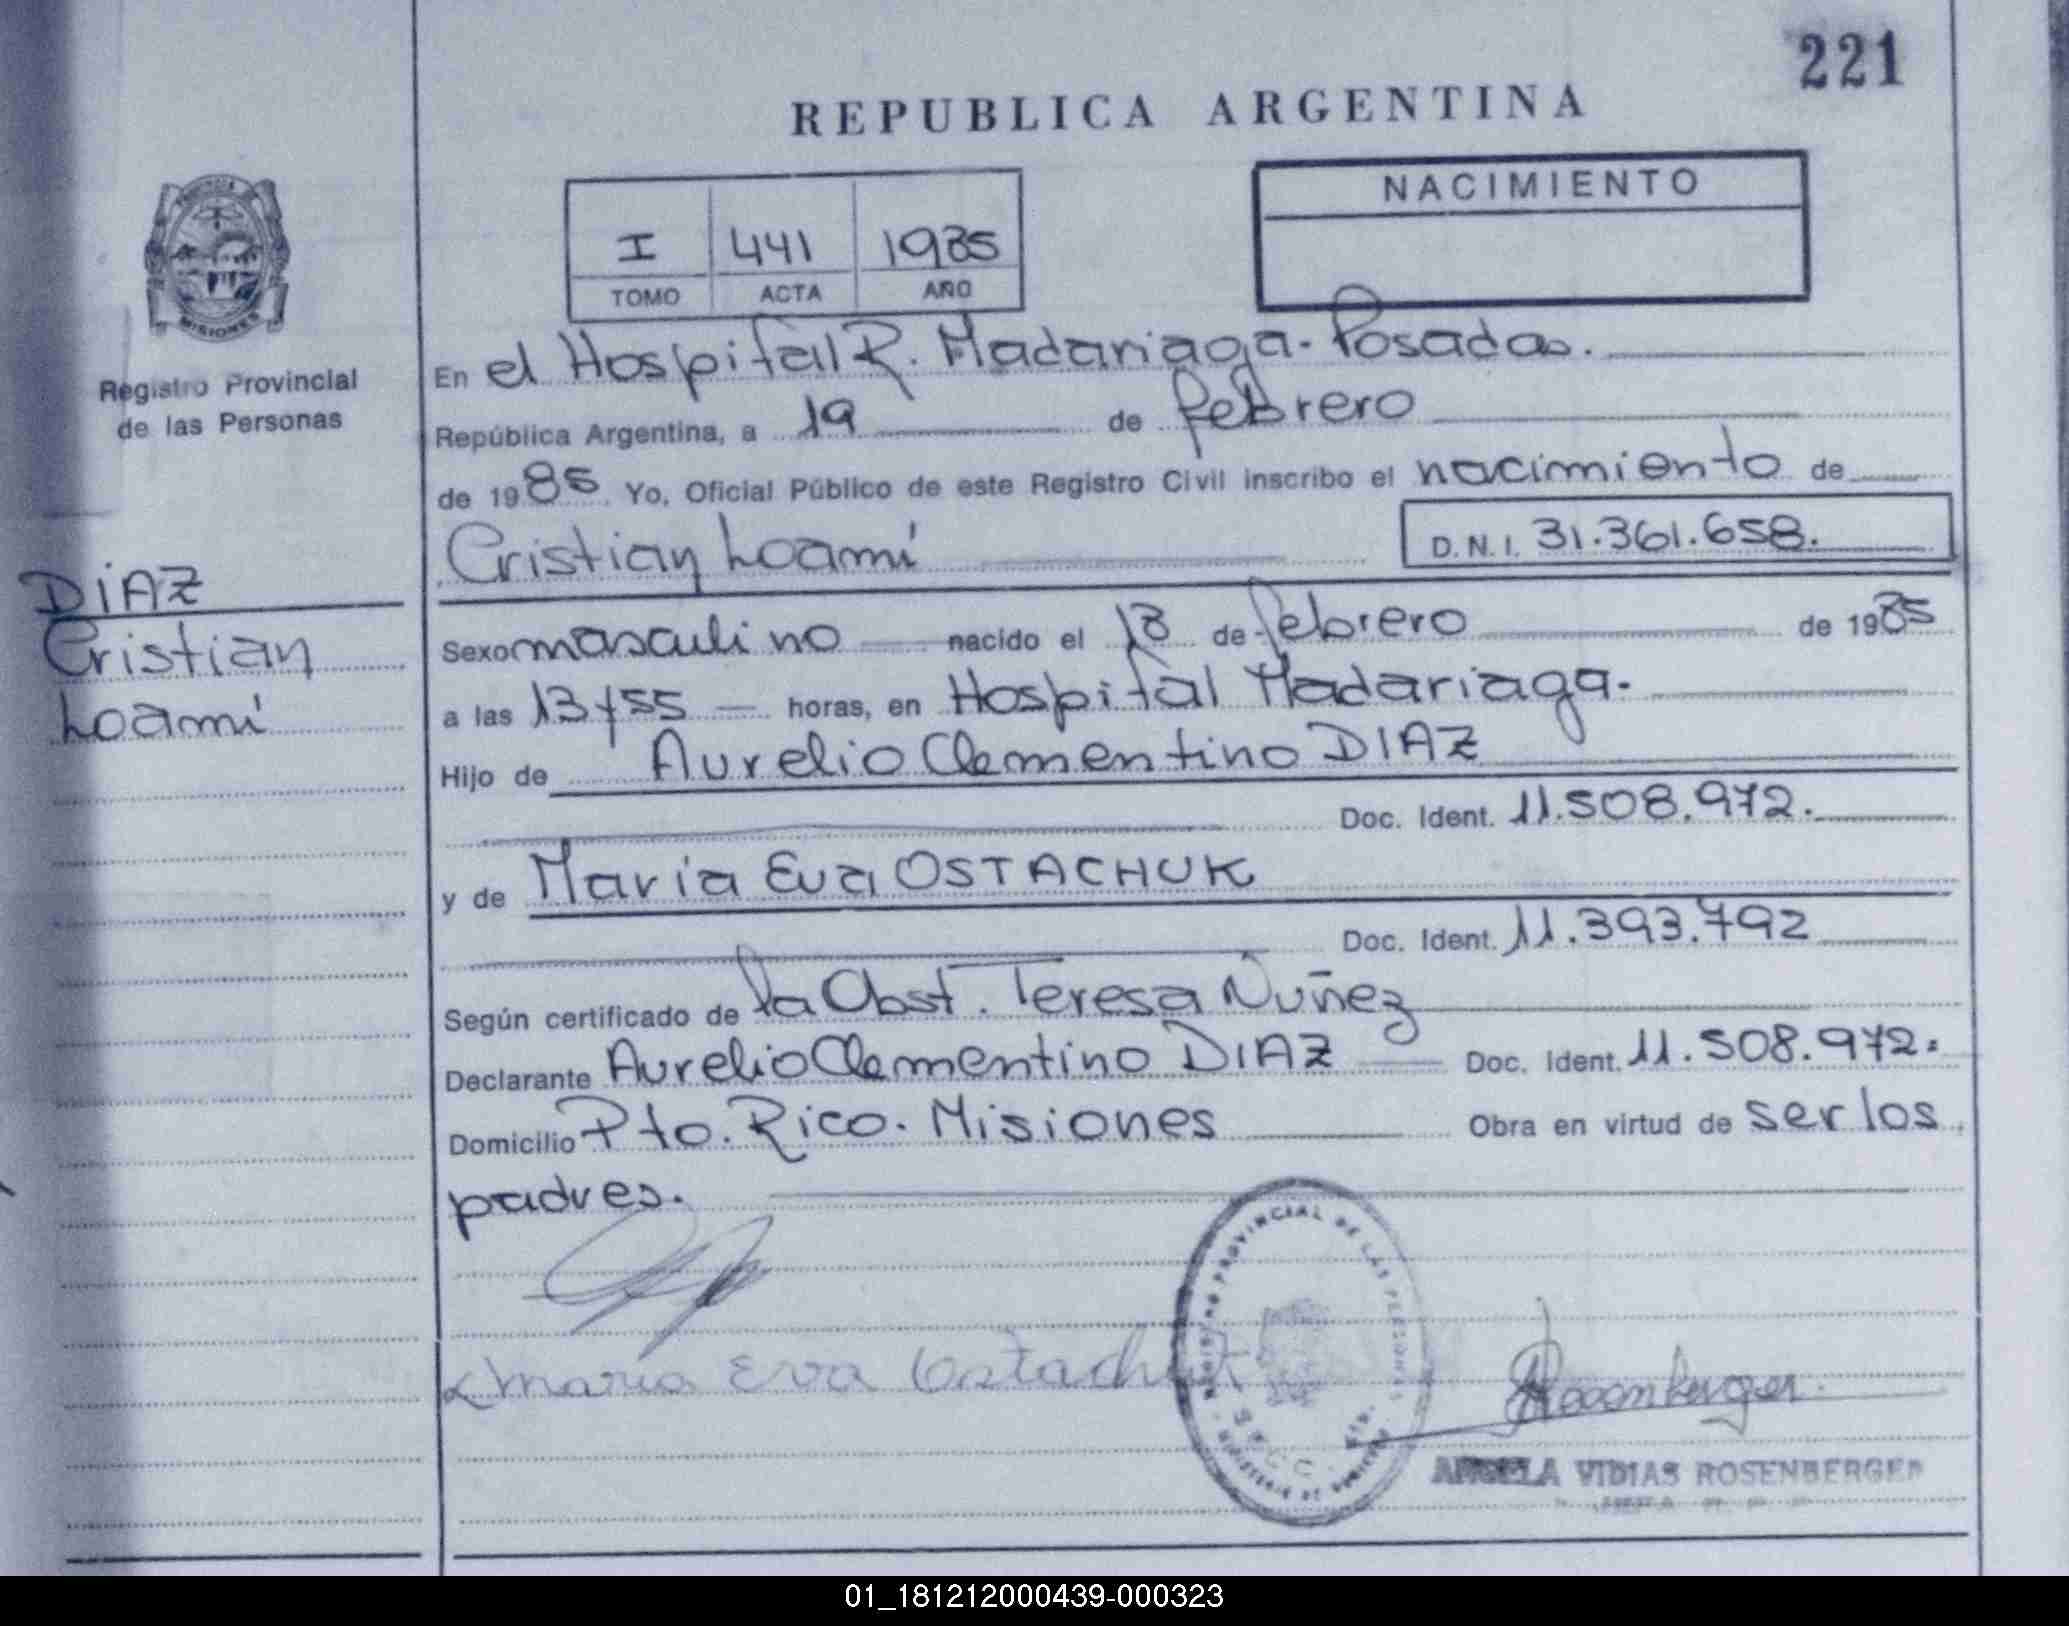 221
REPUBLICA ARGENTINA
NACIMIENTO
I 441 1985
TOMO ACTA AÑO
MISIONES
Registro Provincial
de las Personas
DIAZ
Cristian
Loamí
En el Hospital R. Madariaga - Posadas.
República Argentina, a 19 de febrero
de 1985 Yo, Oficial Público de este Registro Civil inscribo el nacimiento de
Cristian Loamí D.N.I. 31.361.658.
Sexo masculino nacido el 18 de febrero de 1985
a las 13 y 55 horas, en Hospital Madariaga.
Hijo de Aurelio Clementino DIAZ
Doc. Ident. 11.508.972.
y de Maria Eva OSTACHUK
Doc. Ident. 11.393.792
Según certificado de la Obst. Teresa Nuñez
Declarante Aurelio Clementino DIAZ Doc. Ident. 11.508.972.
Domicilio Pto. Rico. Misiones Obra en virtud de ser los
padres.
REGISTRO PROVINCIAL DE LAS PERSONAS
Maria Eva Ostachuk
Rosenberger
ANGELA VIDIAS ROSENBERGER
01_181212000439-000323